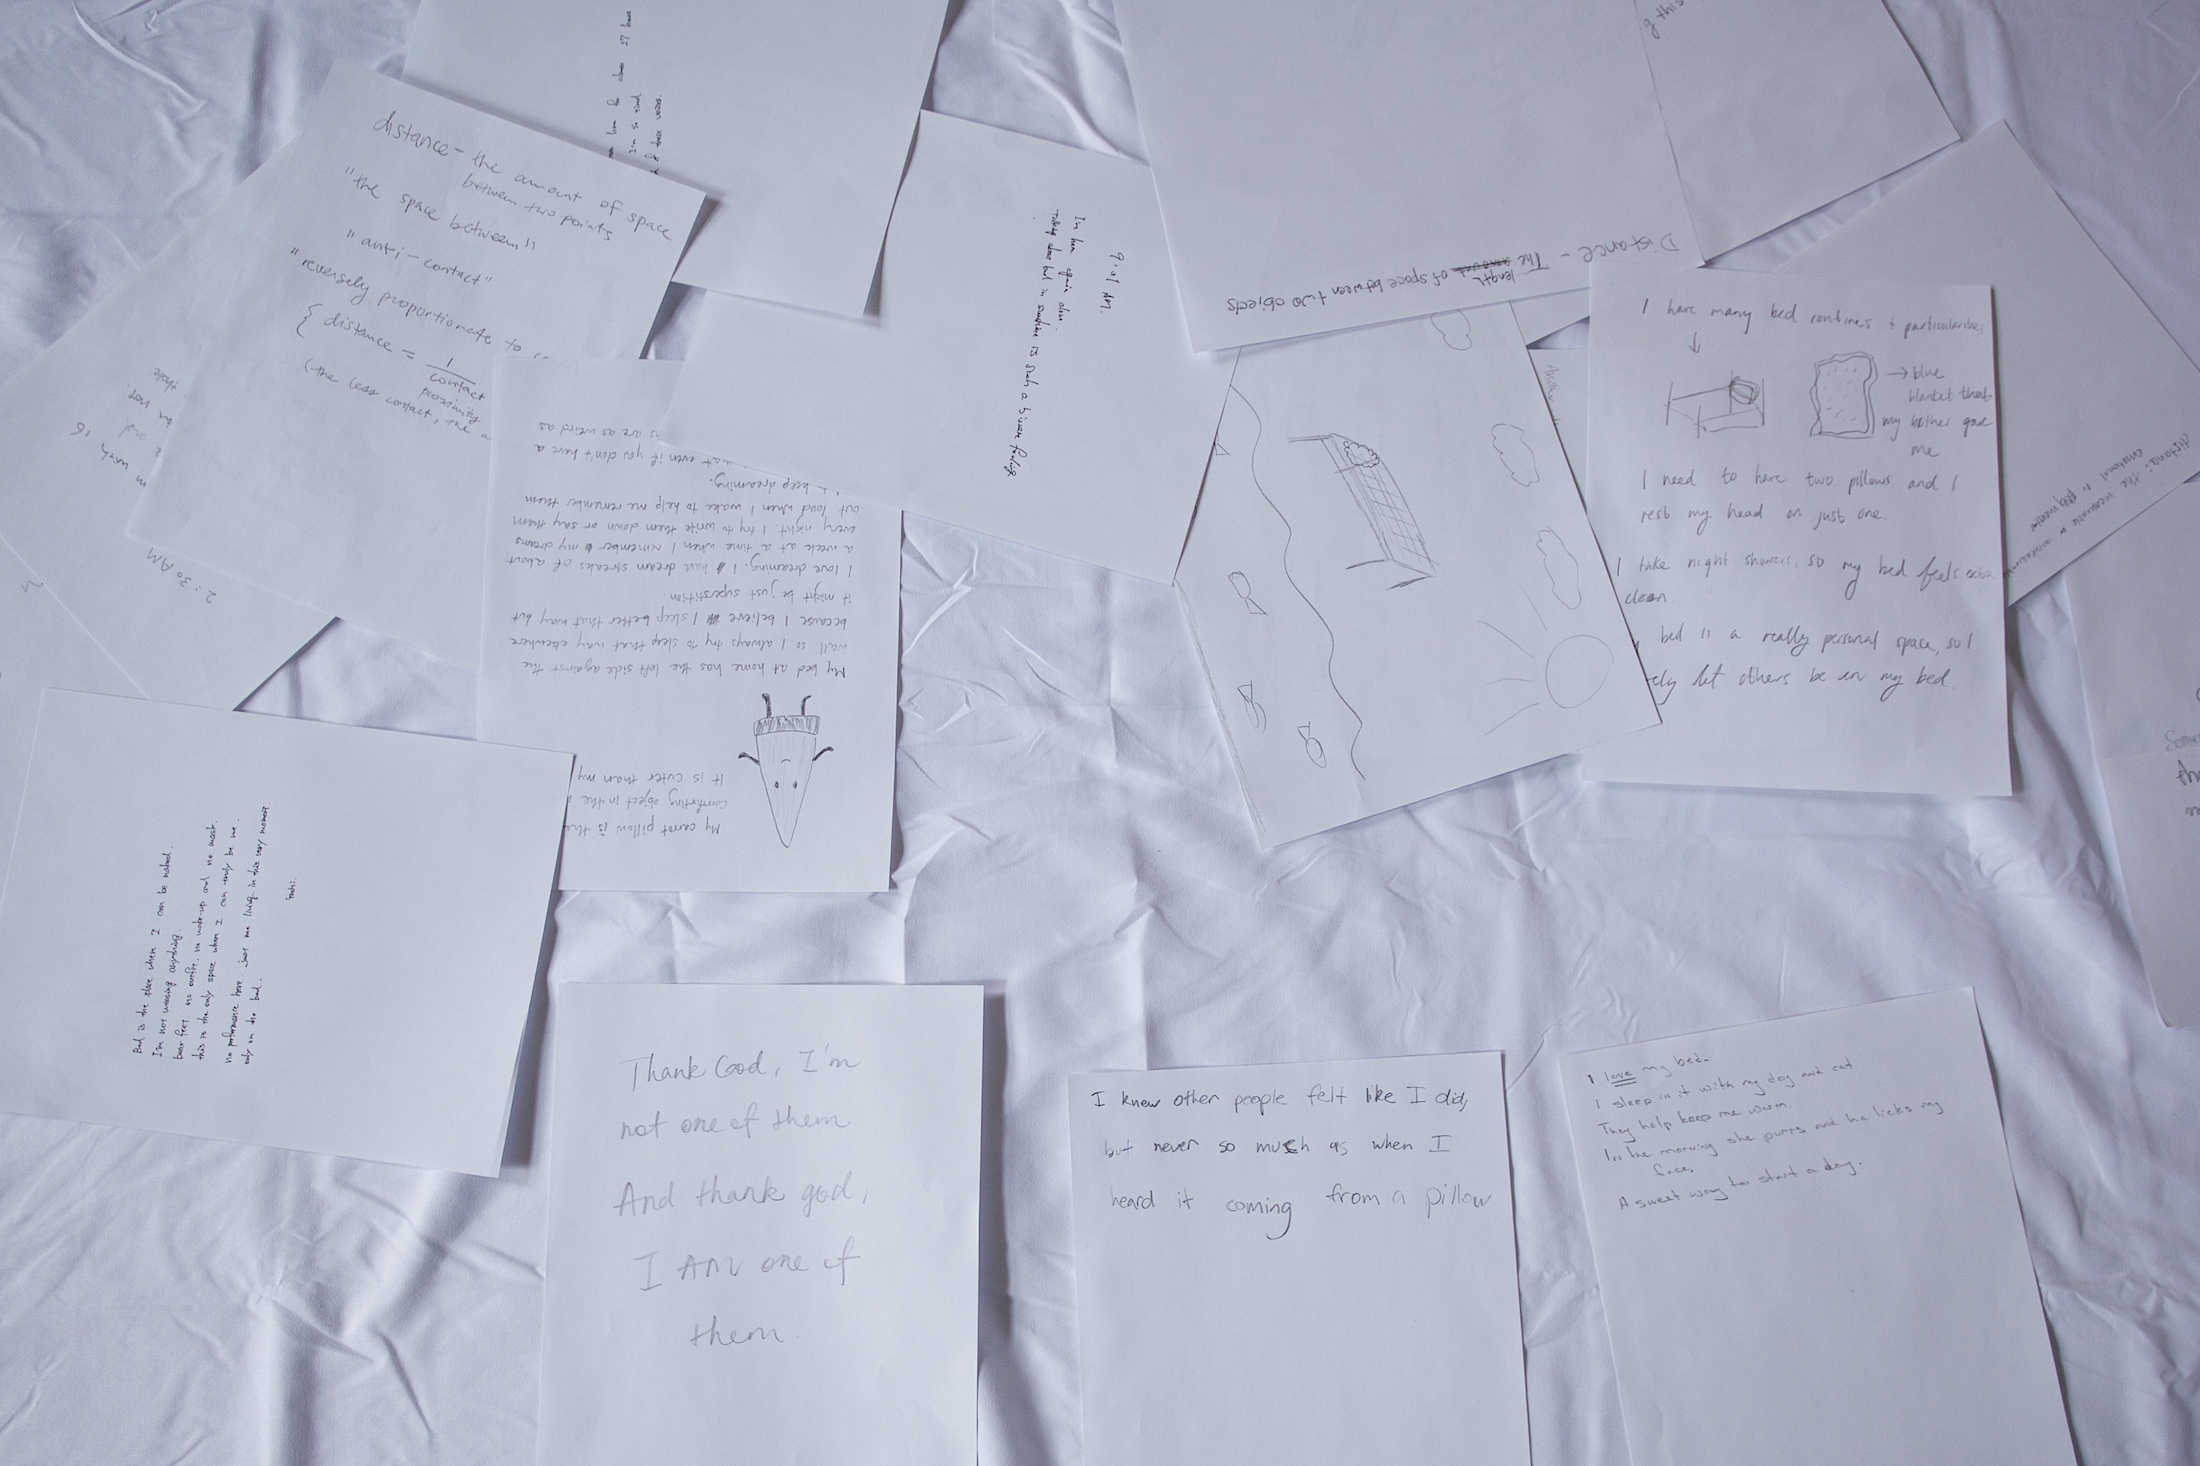 distance - the amount of space
between two points
"the space between"
"anti-contact"
"reversely proportionate to
{ distance = 1
contact
proximity
(the less contact, the
2:30 AM
I'm so tired
these voices.
9:01 AM.
I'm here again alone.
is such a
Distance - The amount of space between two objects
length
I have many bed routines + particularities
→ blue
blanket that
my brother gave
me
I need to have two pillows and I
rest my head on just one.
I take night showers, so my bed feels extra
clean.
bed is a really personal space, so I
rely let others be in my bed.
My carrot pillow is the
comforting object in the
It is cuter than my
My bed at home has the left side against the
wall so I always try to sleep that way elsewhere
because I believe I sleep better that way but
it might be just superstition.
I love dreaming. I have dream streaks of about
a week at a time when I remember my dreams
every night. I try to write them down or say them
out loud when I wake to help me remember them
keep dreaming.
even if you don't have a
are as weird as
Bed is the place when I can be naked.
I'm not wearing anything.
bare feet, no outfit, no make-up and no mask.
this is the only space when I can truly be me.
no performance here. just me living in this very moment
only on the bed.
Thank God, I'm
not one of them.
And thank god,
I AM one of
them.
I knew other people felt like I did,
but never so much as when I
heard it coming from a pillow
I love my bed.
I sleep in it with my dog and cat.
They help keep me warm.
In the morning she purrs and he licks my
face.
A sweet way to start a day.